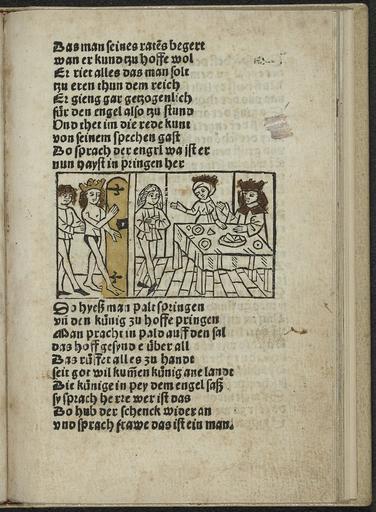 Das man seines rates begert
wan er kund tzu hoffe wol
Er riet alles das man solt
tzu eren thun dem reich
Er gieng gar getzogenlich
für den engel also tzu stund
Vnd thet im die rede kunt
von seinem spechen gast
Do sprach der engel wa ist er
nun hayst in pringen her
Do hyeß man palt springen
vñ den künig zu hoffe pringen
Man pracht in pald auff den sal
das hoff gesynde über all
Daz rüffet alles zu handt
seit got wil kum̃en künig ane landt
Die künigein pey dem engel saß
sy sprach herre wer ist das
Do hub der schenck wider an
vnd sprach frawe das ist ein man.